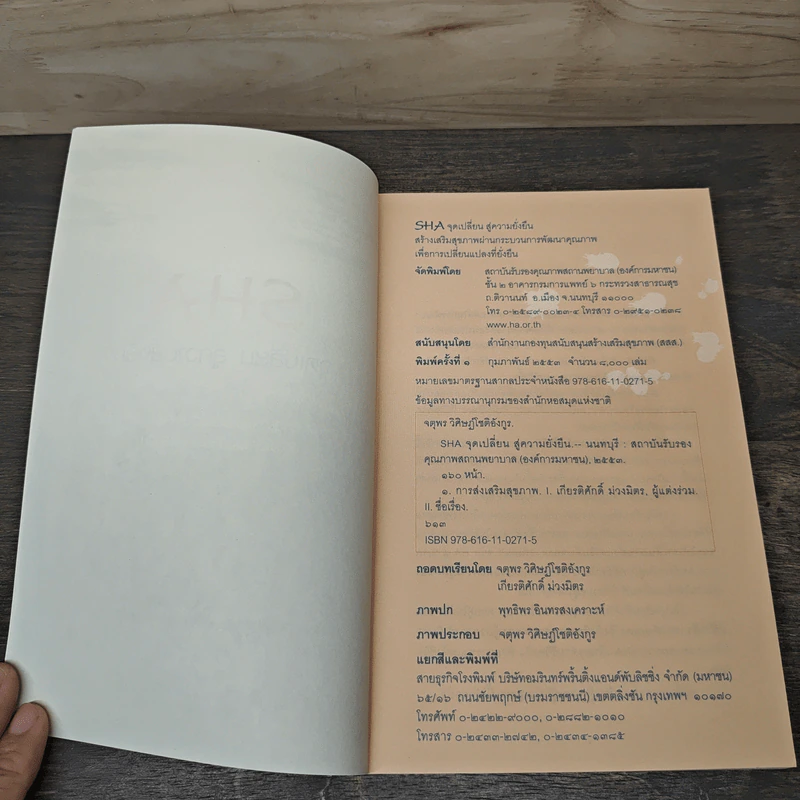 SHA จุดเปลี่ยน สู่ความยั่งยืน
สร้างเสริมสุขภาพผ่านกระบวนการพัฒนาคุณภาพ
เพื่อการเปลี่ยนแปลงที่ยั่งยืน
จัดพิมพ์โดย สถาบันรับรองคุณภาพสถานพยาบาล (องค์การมหาชน)
ชั้น ๒ อาคารกรมการแพทย์ ๖ กระทรวงสาธารณสุข
ถ.ติวานนท์ อ.เมือง จ.นนทบุรี ๑๑๐๐๐
โทร ๐-๒๕๘๙-๐๐๒๓-๔ โทรสาร ๐-๒๙๕๑-๐๒๓๘
www.ha.or.th
สนับสนุนโดย สำนักงานกองทุนสนับสนุนสร้างเสริมสุขภาพ (สสส.)
พิมพ์ครั้งที่ ๑ กุมภาพันธ์ ๒๕๕๓ จำนวน ๘,๐๐๐ เล่ม
หมายเลขมาตรฐานสากลประจำหนังสือ 978-616-11-0271-5
ข้อมูลทางบรรณานุกรมของสำนักหอสมุดแห่งชาติ
จตุพร วิศิษฏ์โชติอังกูร.
SHA จุดเปลี่ยน สู่ความยั่งยืน.-- นนทบุรี : สถาบันรับรอง
คุณภาพสถานพยาบาล (องค์การมหาชน), ๒๕๕๓.
๑๖๐ หน้า.
๑. การส่งเสริมสุขภาพ. I. เกียรติศักดิ์ ม่วงมิตร, ผู้แต่งร่วม.
II. ชื่อเรื่อง.
๖๑๓
ISBN 978-616-11-0271-5
ถอดบทเรียนโดย จตุพร วิศิษฏ์โชติอังกูร
เกียรติศักดิ์ ม่วงมิตร
ภาพปก พุทธิพร อินทรสงเคราะห์
ภาพประกอบ จตุพร วิศิษฏ์โชติอังกูร
แยกสีและพิมพ์ที่
สายธุรกิจโรงพิมพ์ บริษัทอมรินทร์พริ้นติ้งแอนด์พับลิชชิ่ง จำกัด (มหาชน)
๖๕/๑๖ ถนนชัยพฤกษ์ (บรมราชชนนี) เขตตลิ่งชัน กรุงเทพฯ ๑๐๑๗๐
โทรศัพท์ ๐-๒๔๒๒-๙๐๐๐, ๐-๒๘๘๒-๑๐๑๐
โทรสาร ๐-๒๔๓๓-๒๗๔๒, ๐-๒๔๓๔-๑๓๘๕